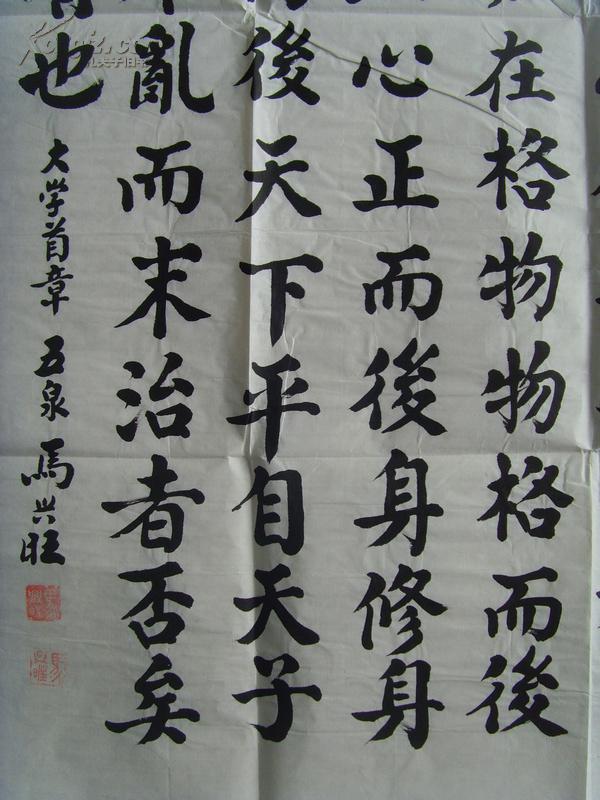 在格物物格而後
心正而後身修身
後天下平自天子
亂而末治者否矣
也
大学首章 五泉 馬兴旺